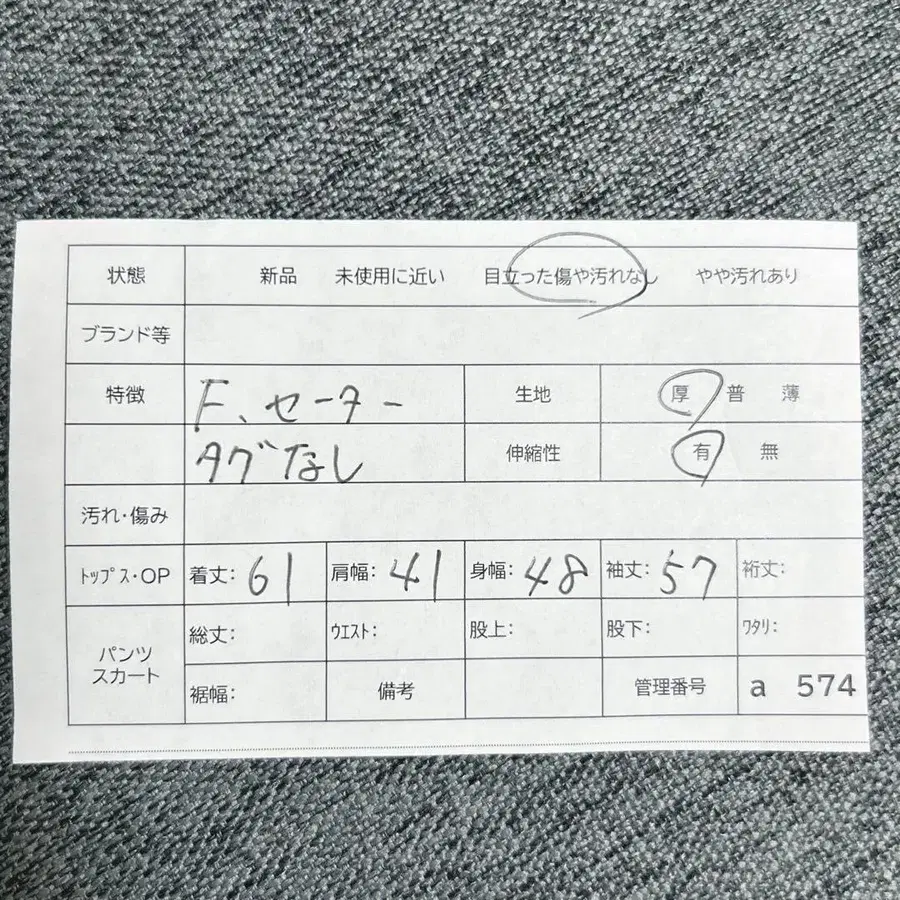 状態 新品 未使用に近い 目立った傷や汚れなし やや汚れあり
ブランド等
特徴 F、セーター 生地 厚 普 薄
タグなし 伸縮性 有 無
汚れ・傷み
ﾄｯﾌﾟｽ・OP 着丈: 61 肩幅: 41 身幅: 48 袖丈: 57 裄丈:
パンツ
スカート
総丈: ｳｴｽﾄ: 股上: 股下: ﾜﾀﾘ:
裾幅: 備考 管理番号 a 574